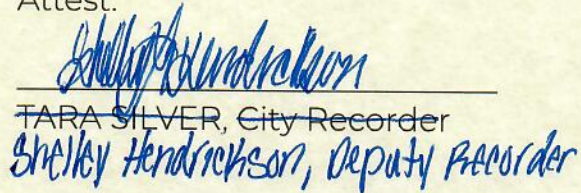 Attest:
Shelley Hendrickson
TARA SILVER, City Recorder
Shelley Hendrickson, Deputy Recorder